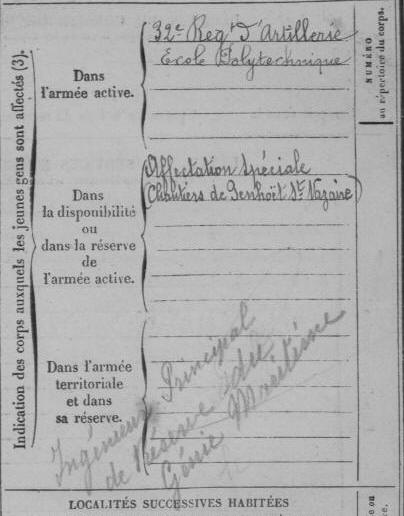 Indication des corps auxquels les jeunes gens sont affectés (3).
Dans
l'armée active.
32e Regt d'Artillerie
Ecole Polytechnique
NUMÉRO
au répertoire du corps.
Dans
la disponibilité
ou
dans la réserve
de
l'armée active.
Affectation spéciale
Chantiers de Penhoët St Nazaire
Dans l'armée
territoriale
et dans
sa réserve.
Ingénieur Principal
de Réserve du
Génie Maritime
LOCALITÉS SUCCESSIVES HABITÉES